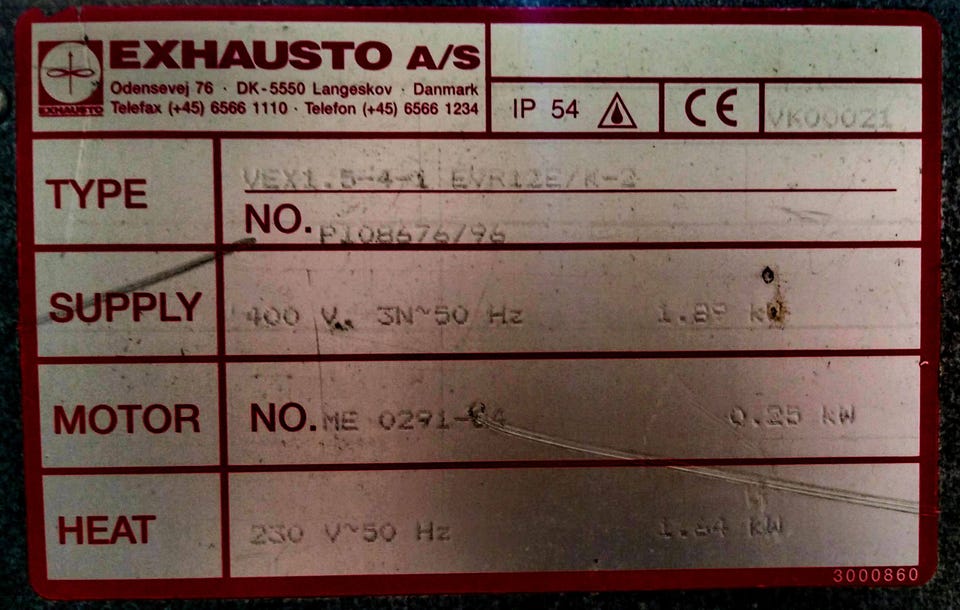 EXHAUSTO A/S
EXHAUSTO
Odensevej 76 · DK-5550 Langeskov · Danmark
Telefax (+45) 6566 1110 · Telefon (+45) 6566 1234
IP 54
CE
VK00021
TYPE
VEX1.5-4-1 EVR12E/K-2
NO. P108676/96
SUPPLY
400 V. 3N~50 Hz 1.89 kW
MOTOR
NO. ME 0291-04 0.25 kW
HEAT
230 V~50 Hz 1.64 kW
3000860